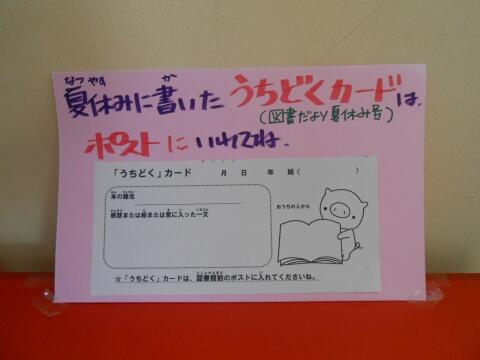 なつやす か
夏休みに書いたうちどくカードは、
(図書だより夏休み号)
ポストにいれてね。
「うちどく」カード 月 日 年 組( )
ほん だいめい
本の題名
おうちの人から
感想または絵または気に入った一文
としょかんまえ い
☆「うちどく」カードは、図書館前のポストに入れてくださいね。